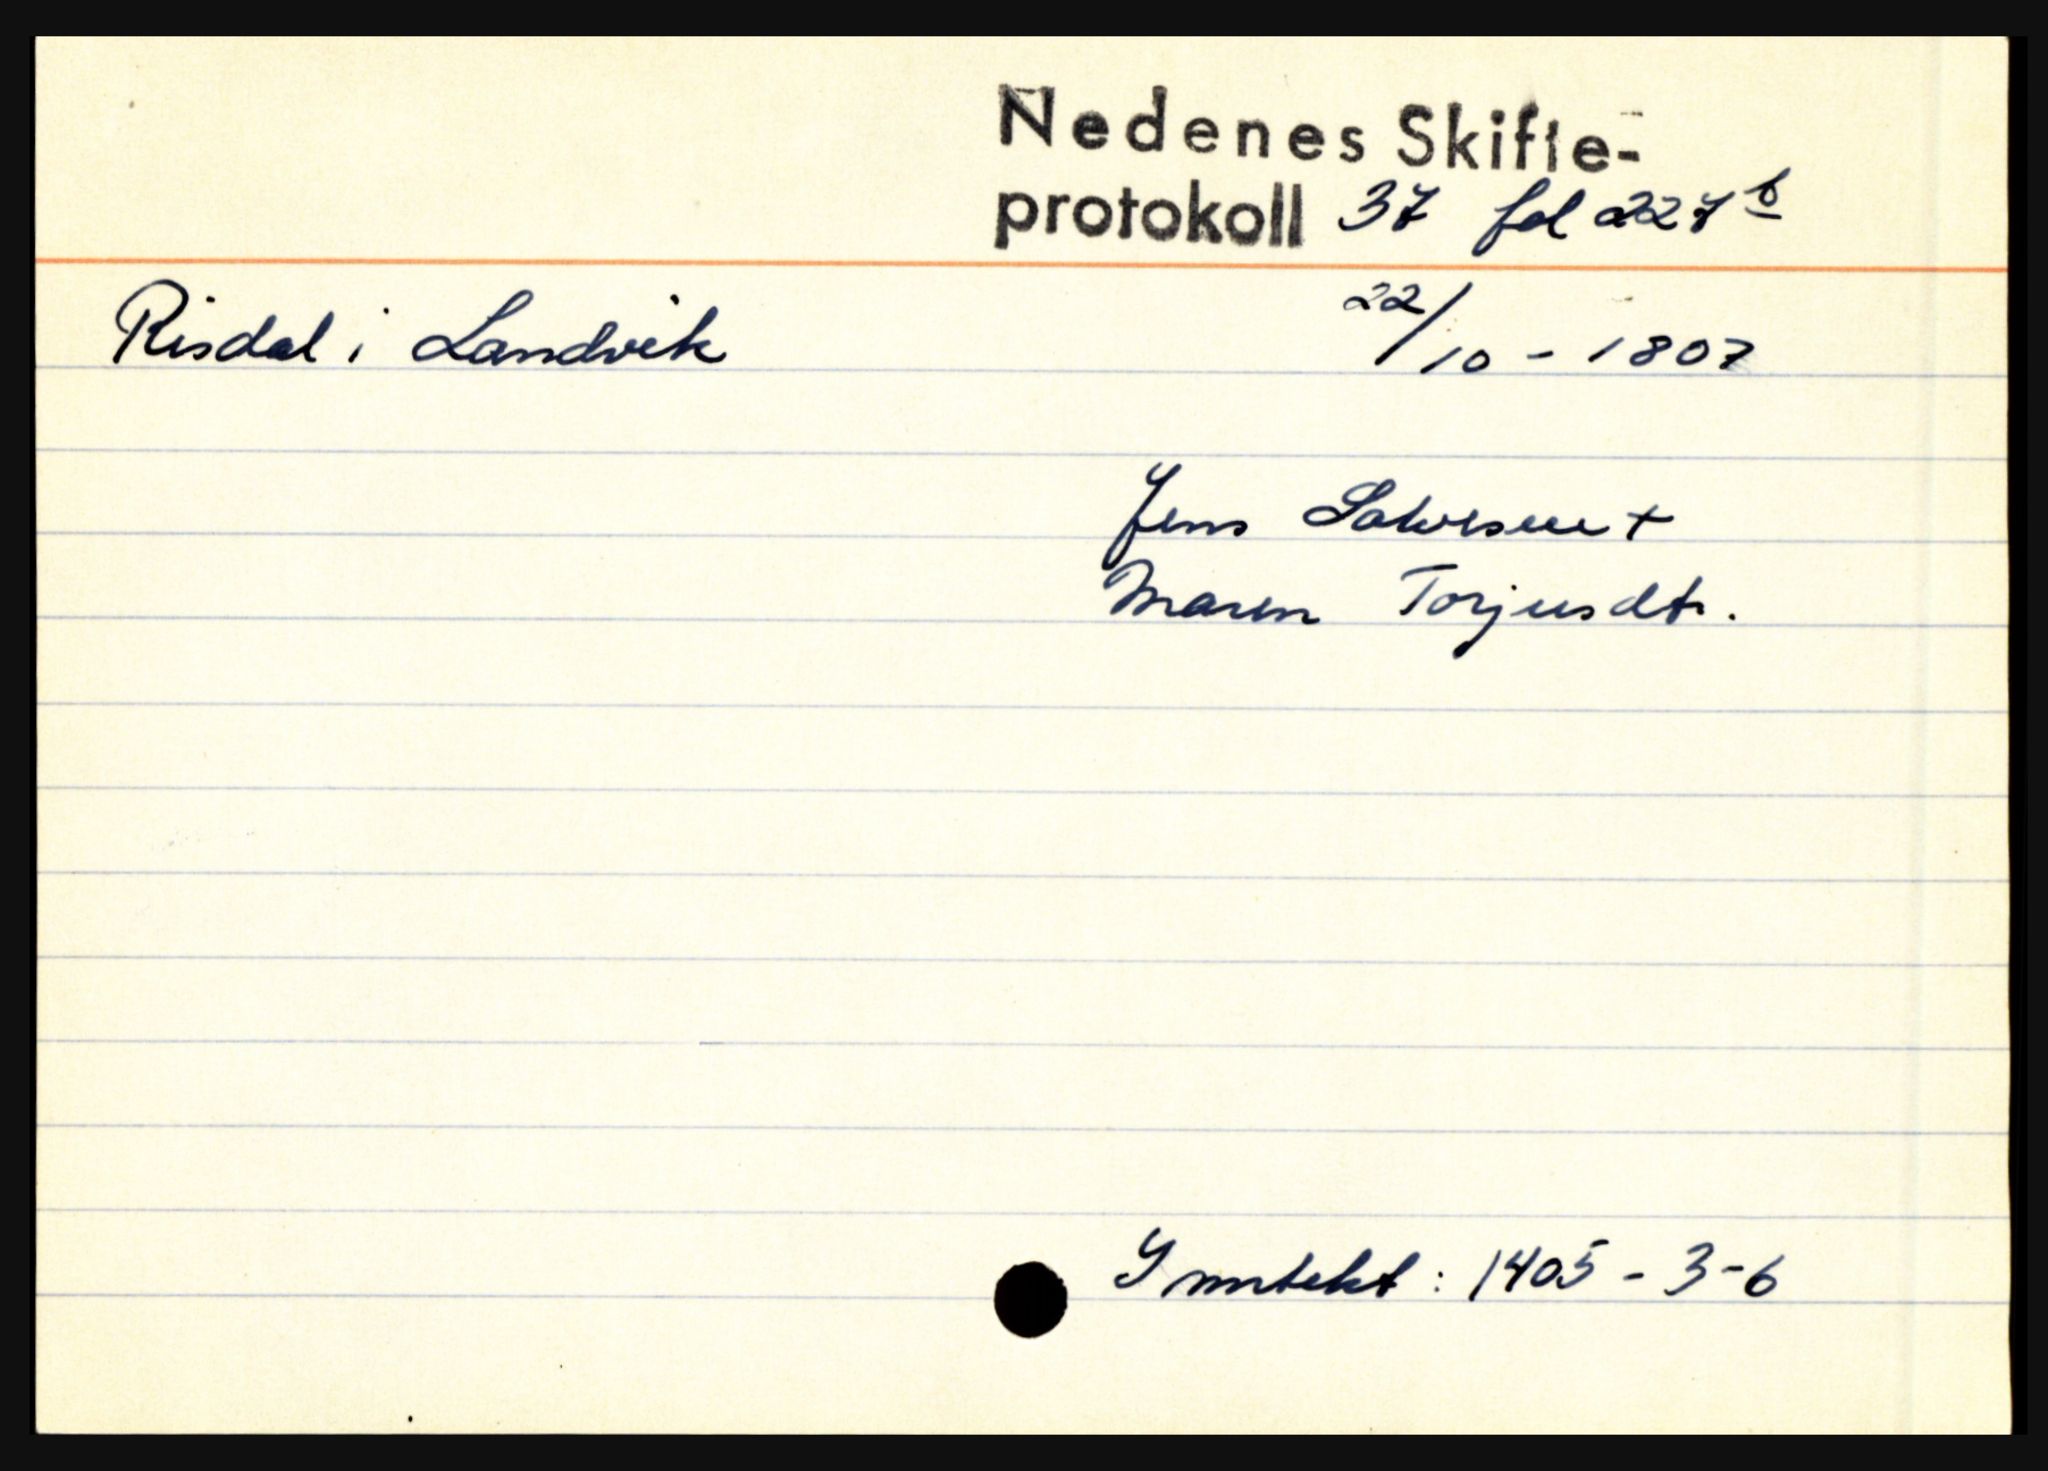 Nedenes Skifte-
protokoll 37 fol 227 b
Risdal i Landvik 22/10 - 1807
Jens Salvesen +
Maren Torjusdtr.
Inntekt : 1405 - 3 - 6